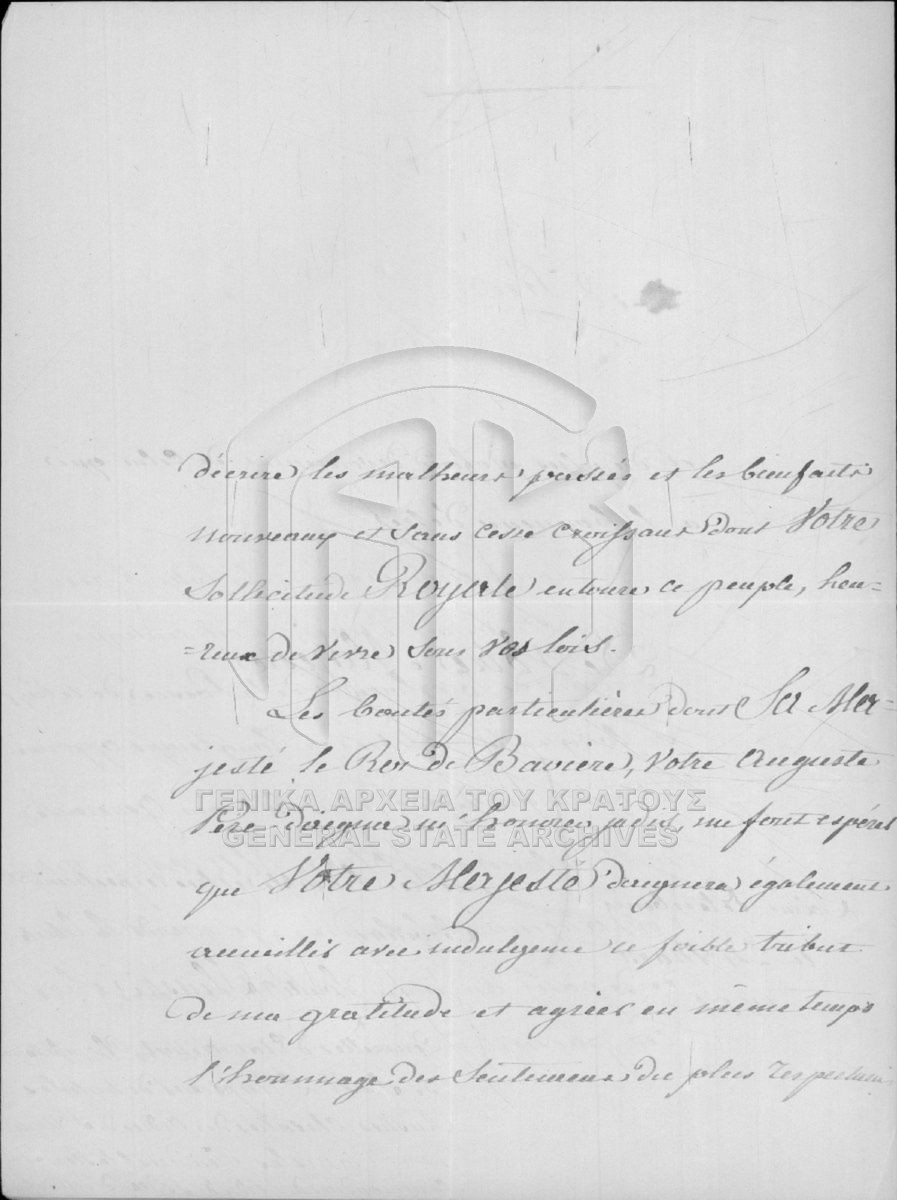 décrire les malheurs passés et les bienfaits
nouveaux et sans cesse croissans dont Votre
Sollicitude Royale entoure ce peuple, heu=
=reux de vivre sous vos lois.
Les bontés particulières dont Sa Ma=
jesté le Roi de Bavière, Votre Auguste
ΓΕΝΙΚΑ ΑΡΧΕΙΑ ΤΟΥ ΚΡΑΤΟΥΣ
Père daigna m'honorer jadis, me font espérer
GENERAL STATE ARCHIVES
que Votre Majesté daignera également
accueillir avec indulgence ce foible tribut
de ma gratitude et agréer en même temps
l'hommage des Sentimens du plus respectueux